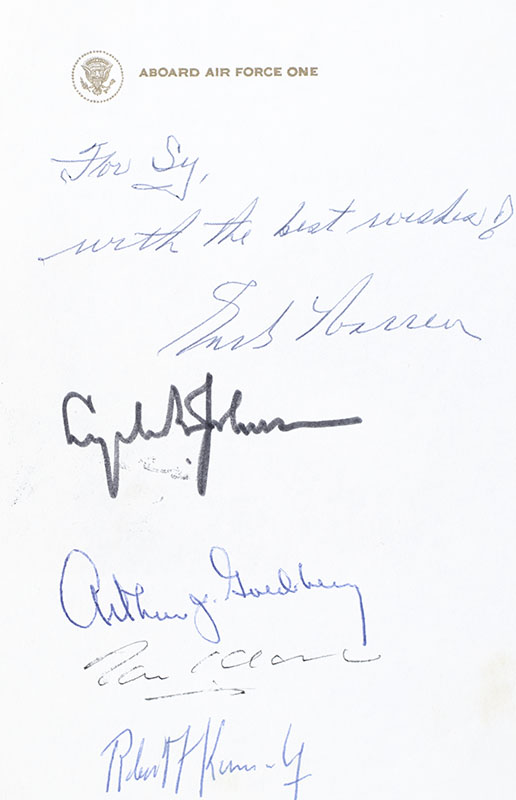 ABOARD AIR FORCE ONE
For Sy,
with the best wishes of
Earl Warren
Lyndon B. Johnson
Arthur J. Goldberg
Robert F Kennedy